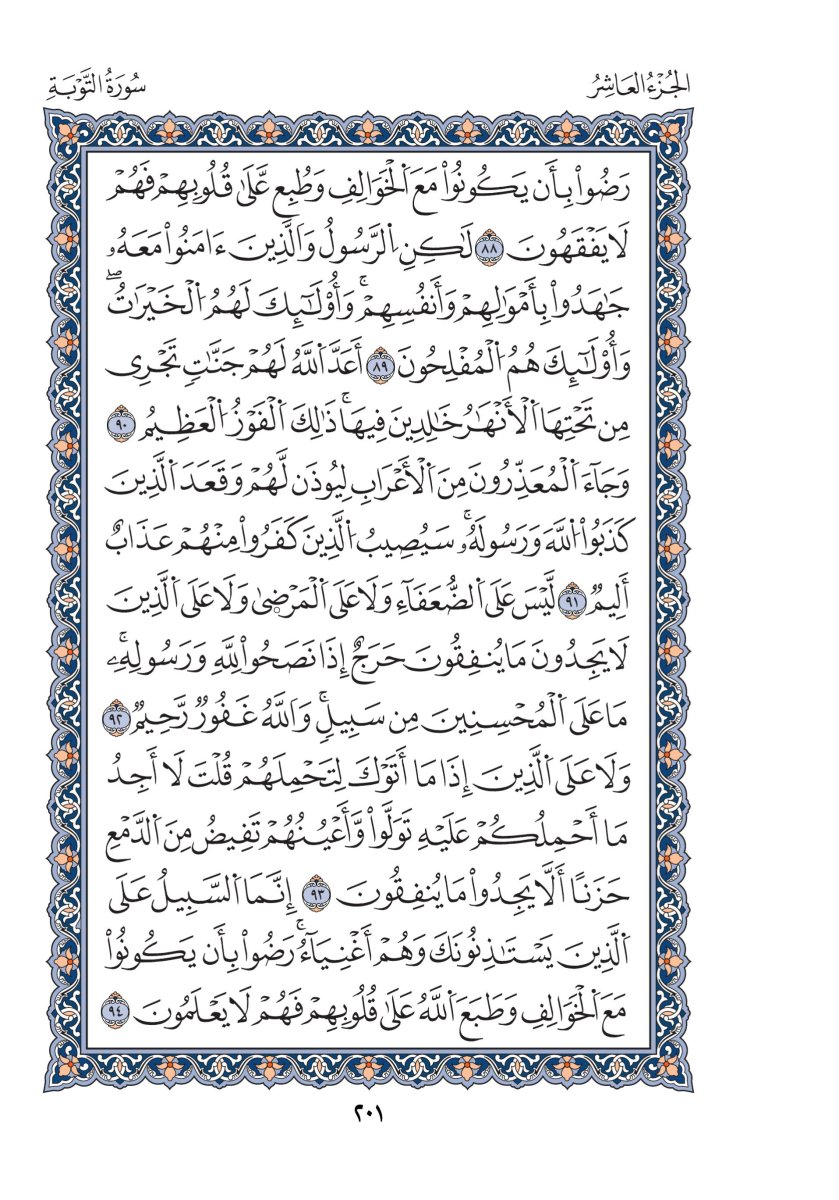 الجُزْءُ العَاشِرُ
سُورَةُ التَّوْبَةِ
رَضُواْ بِأَن يَكُونُواْ مَعَ اَ۬لْخَوَالِفِ وَطُبِعَ عَلَىٰ قُلُوبِهِمْ فَهُمْ
لَا يَفْقَهُونَ ٨٨ لَٰكِنِ اِ۬لرَّسُولُ وَالَّذِينَ ءَامَنُواْ مَعَهُۥ
جَٰهَدُواْ بِأَمْوَٰلِهِمْ وَأَنفُسِهِمْۚ وَأُوْلَٰٓئِكَ لَهُمُ اُ۬لْخَيْرَٰتُۖ
وَأُوْلَٰٓئِكَ هُمُ اُ۬لْمُفْلِحُونَ ٨٩ أَعَدَّ اَ۬للَّهُ لَهُمْ جَنَّٰتٖ تَجْرِي
مِن تَحْتِهَا اَ۬لْأَنْهَٰرُ خَٰلِدِينَ فِيهَاۚ ذَٰلِكَ اَ۬لْفَوْزُ اُ۬لْعَظِيمُ ٩٠
وَجَآءَ اَ۬لْمُعَذِّرُونَ مِنَ اَ۬لْأَعْرَابِ لِيُوذَن لَّهُمْ وَقَعَدَ اَ۬لَّذِينَ
كَذَبُواْ اُ۬للَّهَ وَرَسُولَهُۥۚ سَيُصِيبُ اُ۬لَّذِينَ كَفَرُواْ مِنْهُمْ عَذَابٌ
أَلِيمٞ ٩١ لَّيْسَ عَلَى اَ۬لضُّعَفَآءِ وَلَا عَلَى اَ۬لْمَرْضۭيٰ وَلَا عَلَى اَ۬لَّذِينَ
لَا يَجِدُونَ مَا يُنفِقُونَ حَرَجٌ إِذَا نَصَحُواْ لِلَّهِ وَرَسُولِهِۦۚ
مَا عَلَى اَ۬لْمُحْسِنِينَ مِن سَبِيلٖۚ وَاللَّهُ غَفُورٞ رَّحِيمٞ ٩٢
وَلَا عَلَى اَ۬لَّذِينَ إِذَا مَا أَتَوْكَ لِتَحْمِلَهُمْ قُلْتَ لَا أَجِدُ
مَا أَحْمِلُكُمْ عَلَيْهِ تَوَلَّواْ وَّأَعْيُنُهُمْ تَفِيضُ مِنَ اَ۬لدَّمْعِ
حَزَنًا أَلَّا يَجِدُواْ مَا يُنفِقُونَ ٩٣ إِنَّمَا اَ۬لسَّبِيلُ عَلَى
اَ۬لَّذِينَ يَسْتَٰذِنُونَكَ وَهُمْ أَغْنِيَآءُۚ رَضُواْ بِأَن يَكُونُواْ
مَعَ اَ۬لْخَوَالِفِ وَطَبَعَ اَ۬للَّهُ عَلَىٰ قُلُوبِهِمْ فَهُمْ لَا يَعْلَمُونَ ٩٤
٢٠١